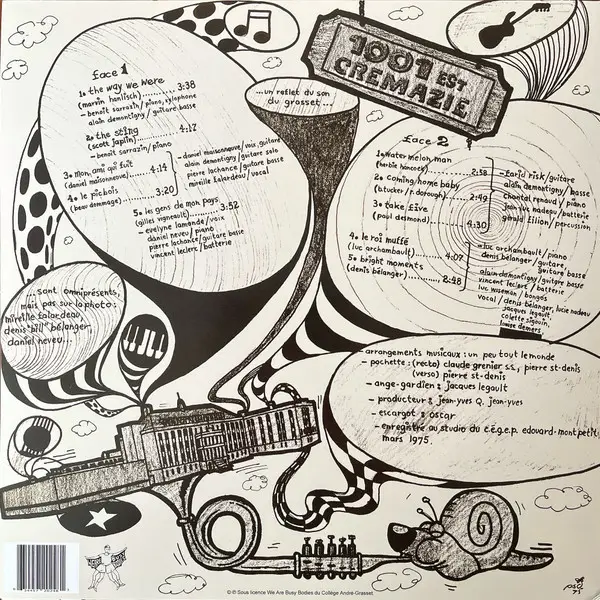 face 1
1• the way we were
(marvin hamlisch) 3:38
- benoit sarrazin/piano, xylophone
alain demontigny/guitare basse
2• the sting
(scott joplin) 4:17
- benoit sarrazin/piano
3• mon ami qui fuit
(daniel maisonneuve) 4:14
4• le picbois
(beau dommage) 3:20
- daniel maisonneuve/voix, guitare
alain demontigny/guitare solo
pierre lachance/guitare basse
mireille falardeau/vocal
5• les gens de mon pays
(gilles vigneault) 3:52
- evelyne lamonde/voix
daniel neveu/piano
pierre lachance/guitare basse
vincent leclerc/batterie
...un reflet du son
du grasset...
1001 EST
CREMAZIE
face 2
1• water melon man
(herbie hancock) 2:58
2• coming home baby
(b. tucker / p. dorough) 2:49
3• take five
(paul desmond) 4:30
- farid risk/guitare
alain demontigny/basse
chantal renaud/piano
jean-luc nadeau/batterie
gérald filion/percussion
4• le roi muffé
(luc archambault) 4:07
5• bright moments
(denis bélanger) 2:48
- luc archambault/piano
denis bélanger/guitare
guitare basse
alain demontigny/guitare basse
vincent leclerc/batterie
luc wiseman/bongos
vocal/denis bélanger, lucie nadeau
jacques legault,
colette sigouin,
louise demers.
...sont omniprésents,
mais pas sur la photo:
mireille falardeau,
denis "bill" bélanger,
daniel neveu..."
- arrangements musicaux: un peu tout le monde
- pochette: (recto) claude grenier s.s., pierre st-denis
(verso) pierre st-denis
- ange-gardien: jacques legault
- producteur: jean-yves Q. jean-yves
- escargot: oscar
- enregistré au studio du c.é.g.e.p. edouard-montpetit
mars 1975.
℗ © Sous licence We Are Busy Bodies du Collège André-Grasset.